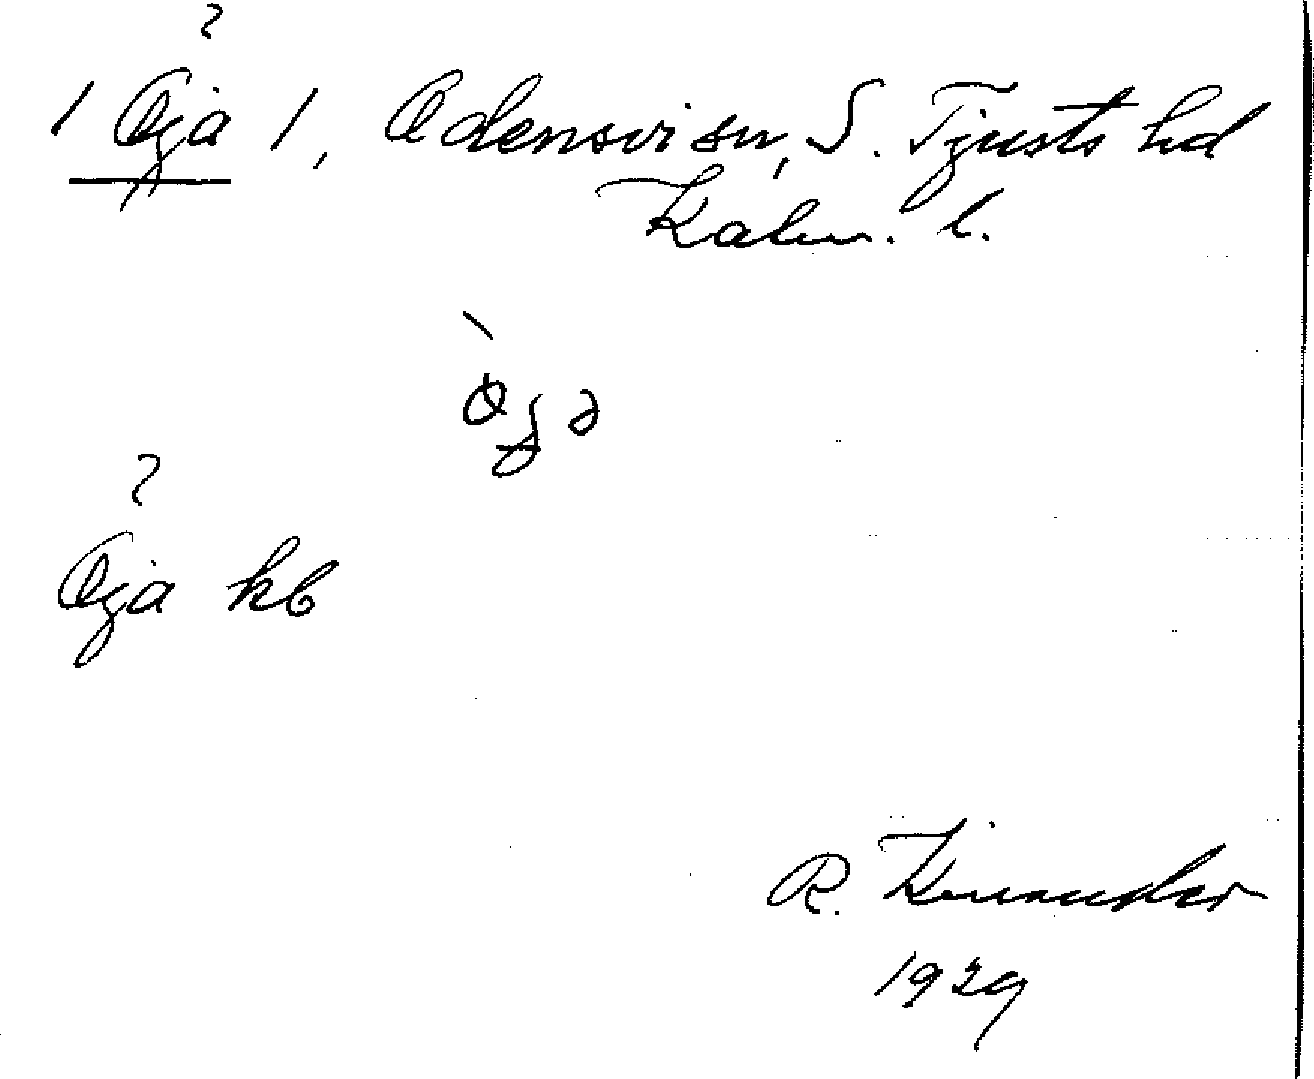 / Öja /, Odensvi sn, S. Tjusts hd
Kalm. l.
Öja kb
R. Kinander
1929